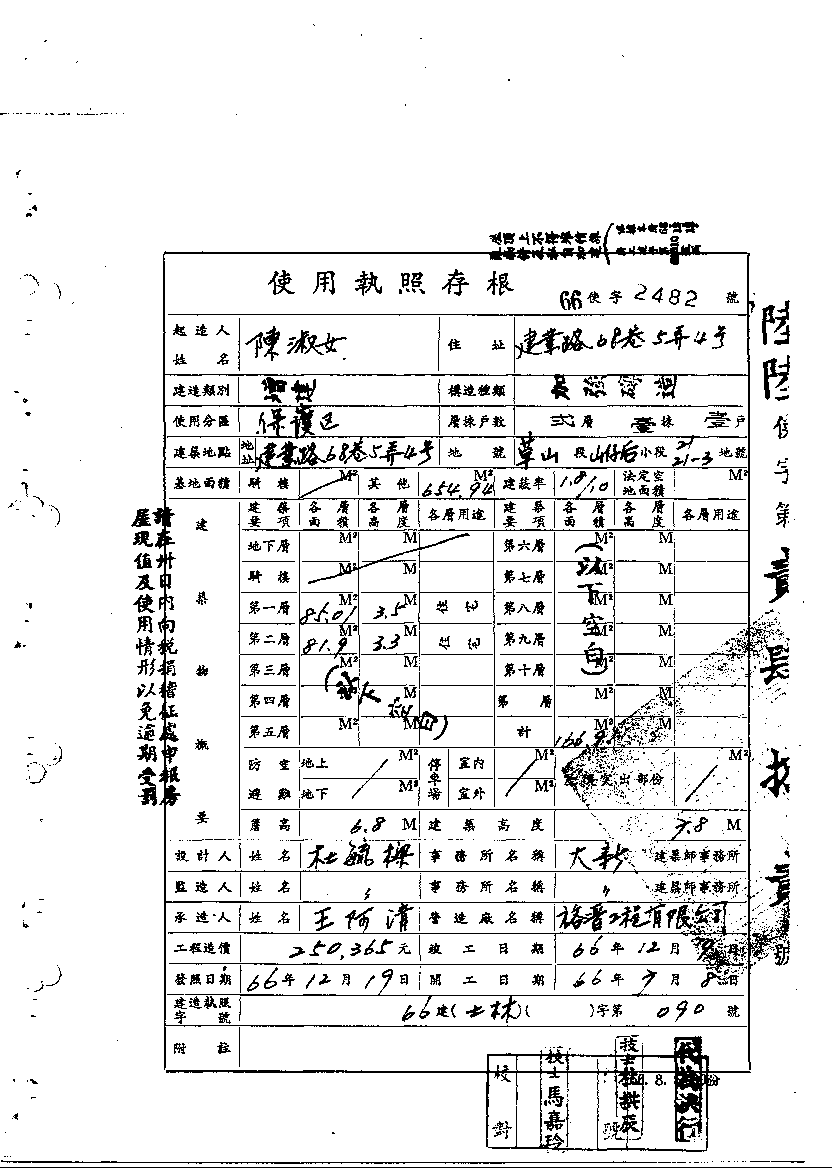 屋頂上不得
使用執照存根
66使字2482號
起造人姓名 陳淑女 住址 建業路68巷5弄4號
建造類別 構造種類 加強磚造
使用分區 保護區 層棟戶數 弍層 壹棟 壹戶
建築地點 地址 建業路68巷5弄4號 地號 草山段山仔后小段21 21-3地號
基地面積 騎樓 M² 其他 654.94 M² 建蔽率 1.8/10 法定空地面積 M²
建築物概要 建築要項 各層面積 各層高度 各層用途 建築要項 各層面積 各層高度 各層用途
地下層 M² M 第六層 M² M
騎樓 M² M 第七層 M² M
第一層 85.01 M² 3.5 M 第八層 M² M
第二層 81.9 M² 3.3 M 第九層 M² M
第三層 M² M 第十層 M² M
第四層 M 第 層 M² M
第五層 M² M 計 M² M
(以下空白)
(以下空白)
防空避難 地上 M² 停車場 室內 M² 突出部份 M²
地下 M² 室外 M²
簷高 6.8 M 建築高度 7.8 M
設計人 姓名 杜毓樑 事務所名稱 大新 建築師事務所
監造人 姓名 〃 事務所名稱 〃 建築師事務所
承造人 姓名 王阿清 營造廠名稱 工程有限公司
工程造價 250,365元 竣工日期 66年12月9日
發照日期 66年12月19日 開工日期 66年7月8日
建造執照字號 66建(士林)( )字第090號
附註
校對 技士馬嘉玲 號
代為決行
請在卅日內向稅捐稽征處申報房
屋現值及使用情形以免逾期受罰
陸陸使字第貳 號